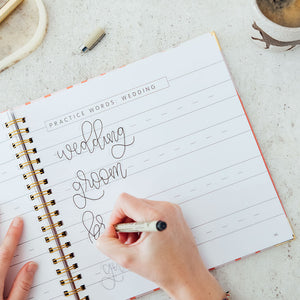 PRACTICE WORDS: WEDDING
wedding
groom